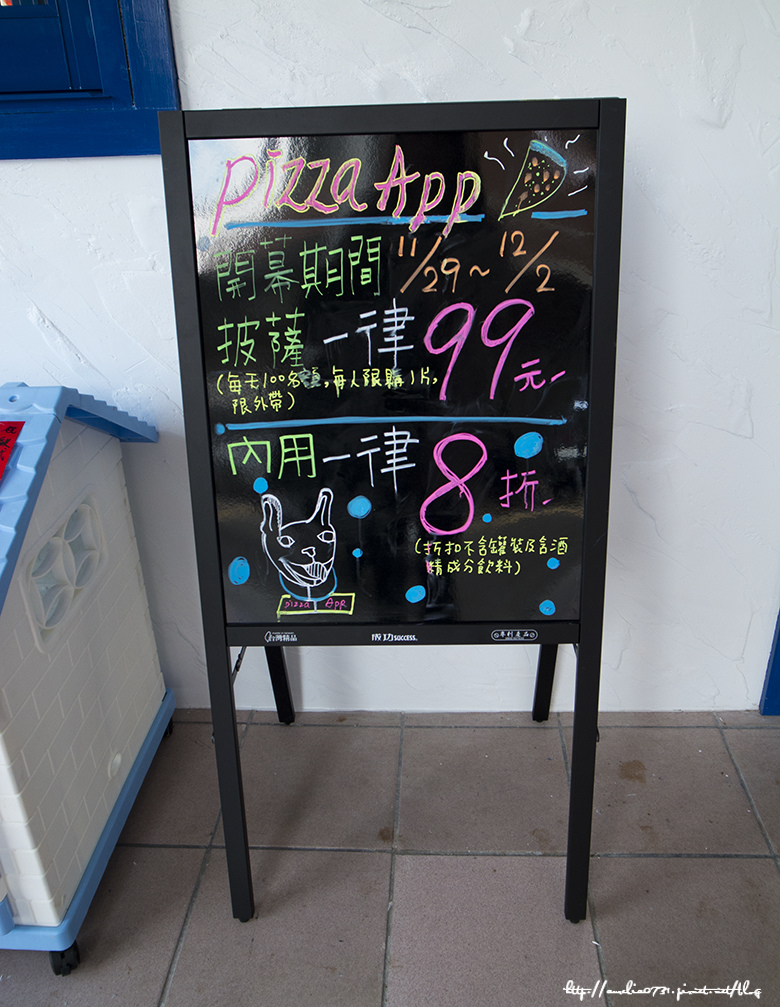 Pizza App
開幕期間 11/29~12/2
披薩一律99元
(每天100名額,每人限購1片,
限外帶)
內用一律8折
(折扣不含罐裝及含酒
精成分飲料)
pizza App
台灣精品 成功SUCCESS. 專利產品